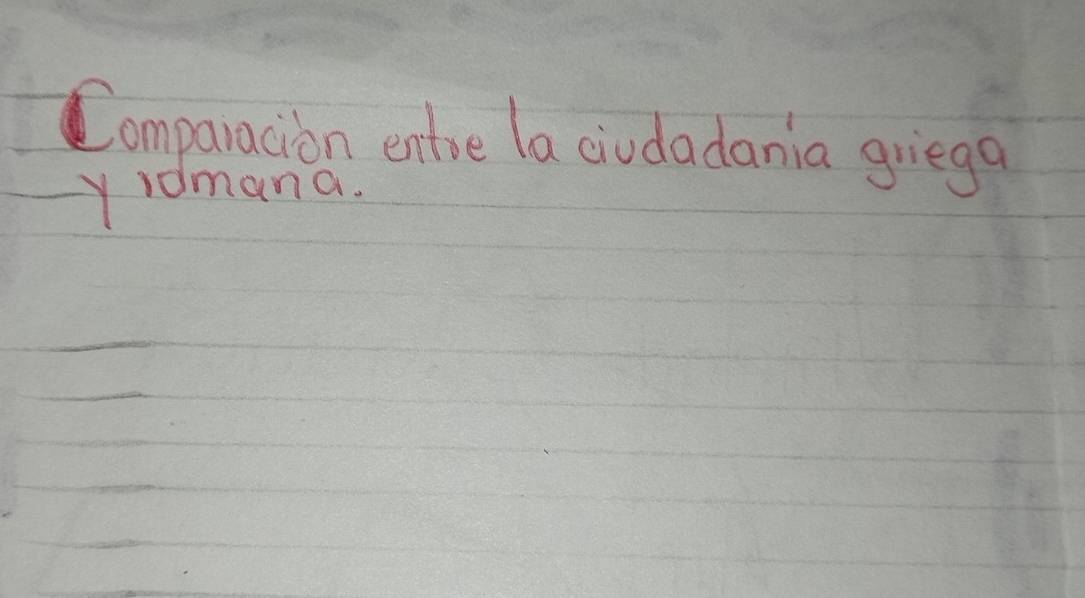 Comparación entre la ciudadanía griega
y romana.